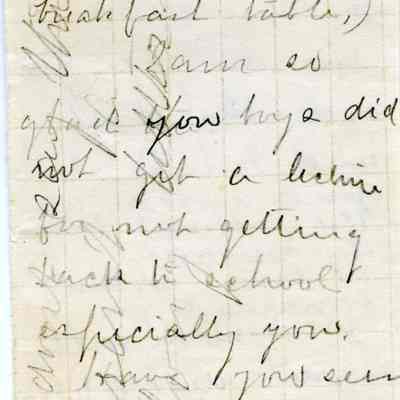 breakfast table,)
I am so
glad you boys did
not get a lecture
for not getting
back to school
especially you.
Have you seen